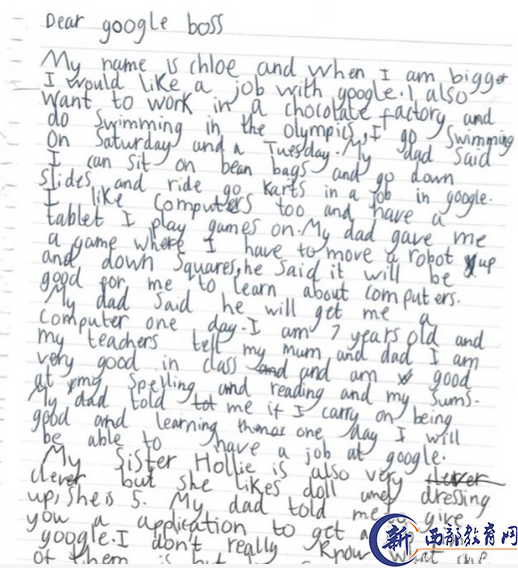 Dear google boss
My name is chloe and when I am bigger
I would like a job with google. I also
want to work in a chocolate factory and
do swimming in the olympics, I go swimming
On Saturday and a Tuesday. My dad said
I can sit on bean bags and go down
slides and ride go karts in a job in google.
I like computers too and have a
tablet I play games on. My dad gave me
a game where I have to move a robot up
and down squares, he said it will be
good for me to learn about computers.
My dad said he will get me a
computer one day. I am 7 years old and
my teachers tell my mum and dad I am
very good in class and and am good
at my spelling and reading and my sums.
My dad told me if I carry on being
good and learning one day I will
be able to have a job at google.
My sister Hollie is also very clever
clever but she likes doll and dressing
up, she is 5. My dad told me give
you a application to get a
google. I don't really know what
of them is but
新 西部教育网